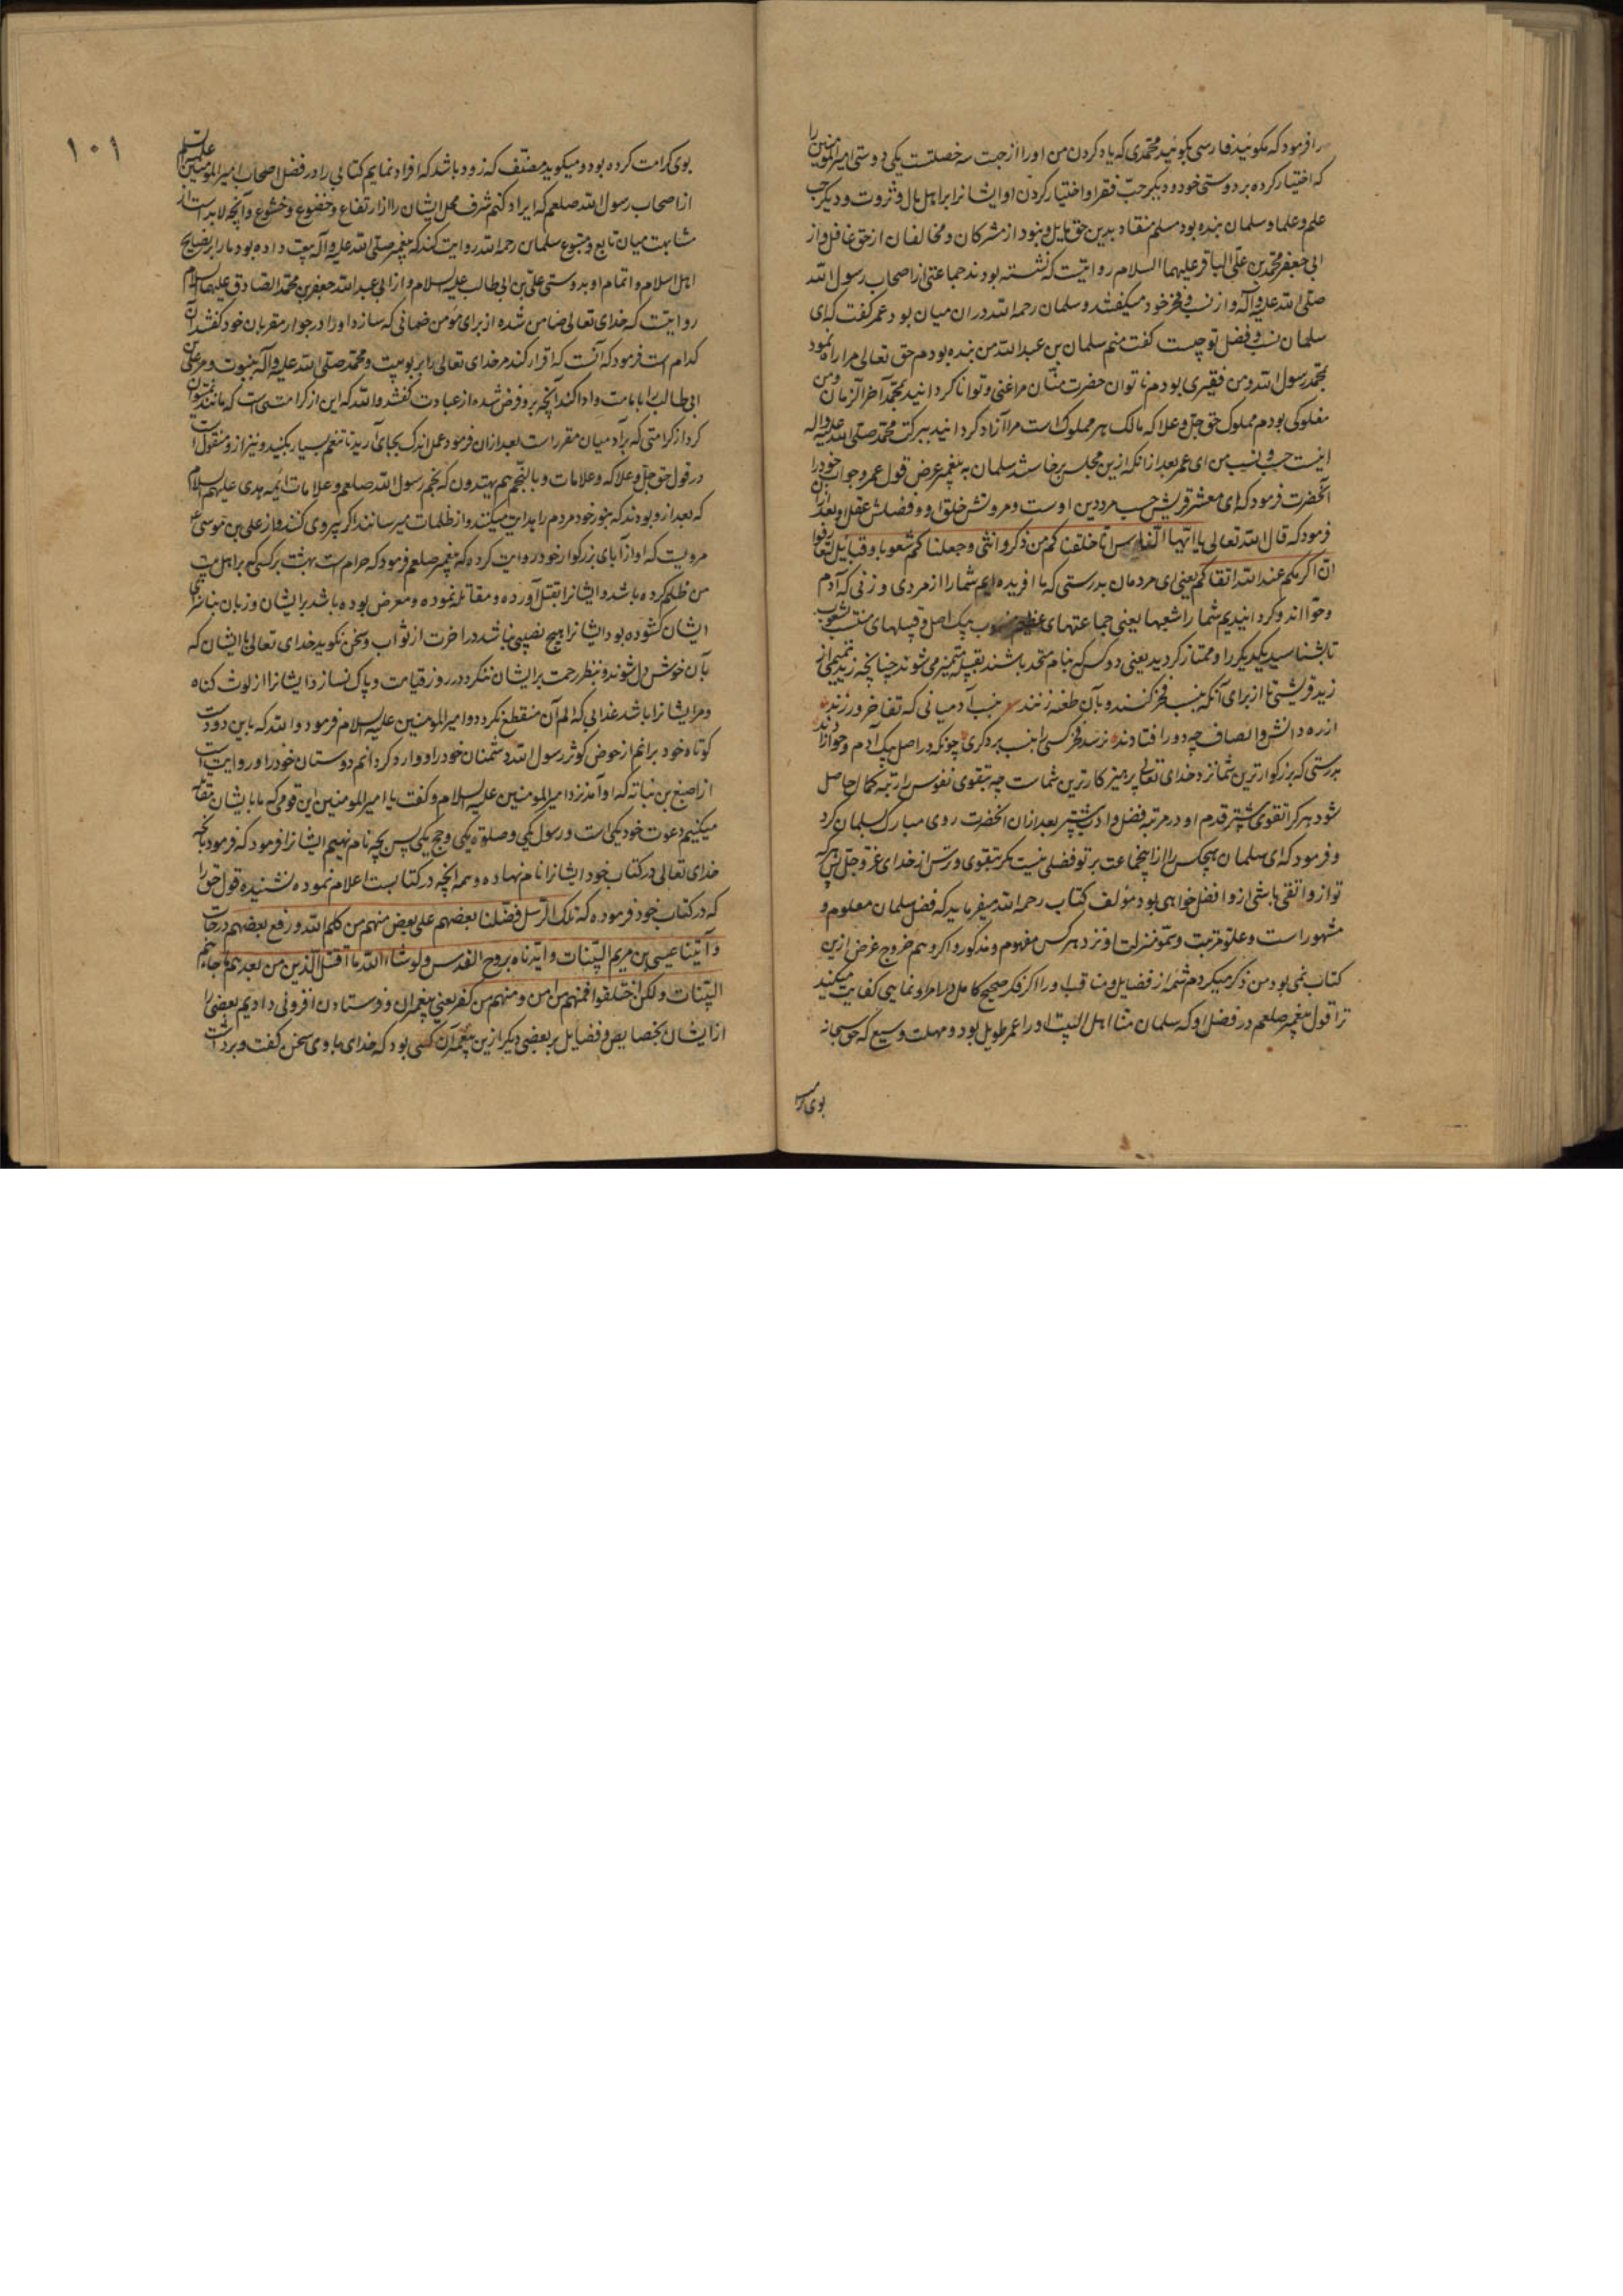 را فرمود که مکوئید فارسی بکوئید محمدی که یاد کردن من او را از جهت سه خصلتست یکی دوستی امیرالمومنین را
که اختیار کرده بر دوستی خود و دیکر حبّ فقرا و اختیار کردن او ایشانرا بر اهل مال و ثروت و دیکر حب
علم و علما و سلمان بنده بود مسلم منقاد بدین حق مایل و نبود از مشرکان و مخالفان از حق غافل و از
ابی جعفر محمد بن علی الباقر علیهما السلام روایتست که نشسته بودند جماعتی از اصحاب رسول الله
صلی الله علیه وآله و از نسب و فخر خود میکفتند و سلمان رحمه الله در ان میان بود عمر کفت که ای
سلمان نسب و فضل تو چیست کفت منم سلمان بن عبدالله من بنده بودم حق تعالی مرا راه نمود
بمحمد رسول الله و من فقیری بودم ناتوان حضرت منّان مرا غنی و توانا کردانید بمحمد آخر الزمان و من
مملوکی بودم مملوک حق جل و علا که مالک هر مملوک است مرا آزاد کردانید ببرکت محمد صلی الله علیه واله
اینست حسب و نسب من ای عمر بعد از انکه ازین مجلس برخاست سلمان به پیغمبر عرض قول عمر و جواب خود را
آنحضرت فرمود که ای معشر قریش حسب مرد دین اوست و مروتش خلق او و فضلش عقل او بعد از ان
فرمود که قال الله تعالی یا ایها الناس انا خلقناکم من ذکر وانثی وجعلناکم شعوبا وقبائل لتعارفوا
ان اکرمکم عند الله اتقاکم یعنی ای مردمان بدرستی که ما افریده ایم شما را از مردی و زنی که آدم
و حوّا اند و کردانیدیم شما را شعبها یعنی جماعتهای عظیم منسوب بیک اصل و قبیلهای منتسب بشعوب
تا بشناسید یکدیکر را و ممتاز کردید یعنی دو کس که بنام متحد باشند بقبیله متمیز می شوند چنانچه زید تمیمی از
زید قریشی نه از برای آنکه بنسب فخر کنند و بآن طعنه زنند بنسب آدمیانی که تفاخر ورزند
از ره دانش و انصاف چه دور افتادند نرسد فخر کسی را بنسب بر دکری چونکه در اصل یک آدم و حوا زادند
بدرستی که بزرکوارترین شما نزد خدای تعالی پرهیزکارترین شماست چه بتقوی نفوس را رتبه کمال حاصل
شود هر کرا تقوی بیشتر قدم او در مرتبه فضل و ادب پیشتر بعد از ان آنحضرت روی مبارک بسلمان کرد
و فرمود که ای سلمان هیچکس را از اینجماعت بر تو فضلی نیست مکر بتقوی و ترس از خدای عز و جل پس هر که
تو از و اتقی باشی از و افضل خواهی بود مؤلف کتاب رحمه الله میفرماید که فضل سلمان معلوم و
مشهور است و علوّ مرتبت و سموّ منزلت او نزد هر کس مفهوم و مذکور و اکر وهم خروج غرض ازین
کتاب نمی بود من ذکر میکردم شمه از فضایل و مناقب او را اکر فکر صحیح کامل در امر او نمایی کفایت میکند
ترا قول پیغمبر صلعم در فضل او که سلمان منا اهل البیت او را عمر طویل بود و مهلت وسیع که حق سبحانه
بوی کرا
۱۰۱
بوی کرامت کرده بود و میکوید مصنّف که زود باشد که افراد نمایم کتابی را در فضل اصحاب امیرالمومنین علیه السلم
از اصحاب رسول الله صلعم که ایراد کنم شرف محل ایشان را از ارتفاع و خضوع و خشوع و آنچه لابدست از
مشابهت میان تابع و متبوع سلمان رحمه الله روایت کند که پیغمبر صلی الله علیه وآله بیعت داده بود ما را بر نصایح
اهل اسلام و اتمام او بدوستی علی بن ابی طالب علیه السلام و از ابی عبدالله جعفر بن محمد الصادق علیهما السلام
روایتست که خدای تعالی ضامن شده از برای مؤمن ضمانی که سازد او را در جوار مقربان خود کفتند آن
کدام است فرمود که آنست که اقرار کند مر خدای تعالی را بربوبیت و محمد صلی الله علیه وآله بنبوت و مر علی بن
ابی طالب را بامامت و ادا کند آنچه بر و فرض شده از عبادت کفتند والله که این از کرامتی است که مانند نتوان
کرد از کرامتی که برآدمیان مقرر است بعد از ان فرمود عمل اندک بجای آرید تا تنعم بسیار بکنید و نیز از و منقول است
در قول حق جل و علا که وعلامات وبالنجم هم یهتدون که نجم رسول الله صلعم و علامات ائمه هدی علیهم السلام
که بعد از و بودند که بنور خود مردم را هدایت میکنند و از ظلمات میرسانند اکر پیروی کنند و از علی بن موسی ع
مرویست که او از آبای بزرکوار خود روایت کرده که پیغمبر صلعم فرمود که حرام است بهشت بر کسی که بر اهل بیت
من ظلم کرده باشد و ایشانرا بقتل آورده و مقاتله نموده و معرض بوده باشد بر ایشان و زبان بناسزای
ایشان کشوده بود ایشانرا هیچ نصیبی نباشد در اخرت از ثواب و سخن نکوید خدای تعالی با ایشان که
بآن خوش دل شوند و بنظر رحمت بر ایشان ننکرد در روز قیامت و پاک نسازد ایشانرا از لوث کناه
و مر ایشانرا باشد عذابی که الم آن منقطع نکردد و امیرالمومنین علیه السلام فرمود والله که باین دو دست
کوتاه خود برانم از حوض کوثر رسول الله دشمنان خود را و وارد کردانم دوستان خود را و روایت است
از اصبغ بن نباته که او آمد نزد امیرالمومنین علیه السلام و کفت یا امیرالمومنین این قومی که ما با ایشان مقاتله
میکنیم دعوت خود یکی است و رسول یکی و صلوة یکی و حج یکی پس بچه نام نهیم ایشانرا فرمود که فرمود بآنچه
خدای تعالی در کتاب خود ایشانرا نام نهاده و همه آنچه در کتابست اعلام نموده نشنیده قول حق را
که در کتاب خود فرموده که تلک الرسل فضّلنا بعضهم علی بعض منهم من کلم الله ورفع بعضهم درجات
وآتینا عیسی بن مریم البینات وایدناه بروح القدس ولو شاء الله ما اقتتل الذین من بعدهم من بعد ما جاءتهم
البینات ولکن اختلفوا فمنهم من امن ومنهم من کفر یعنی پیغمبران و فرستادن افزونی دادیم بعضی را
از ایشان بخصایص و فضایل بر بعضی دیکر ازین پیغمبران کسی بود که خدای با وی سخن کفت و برداشت